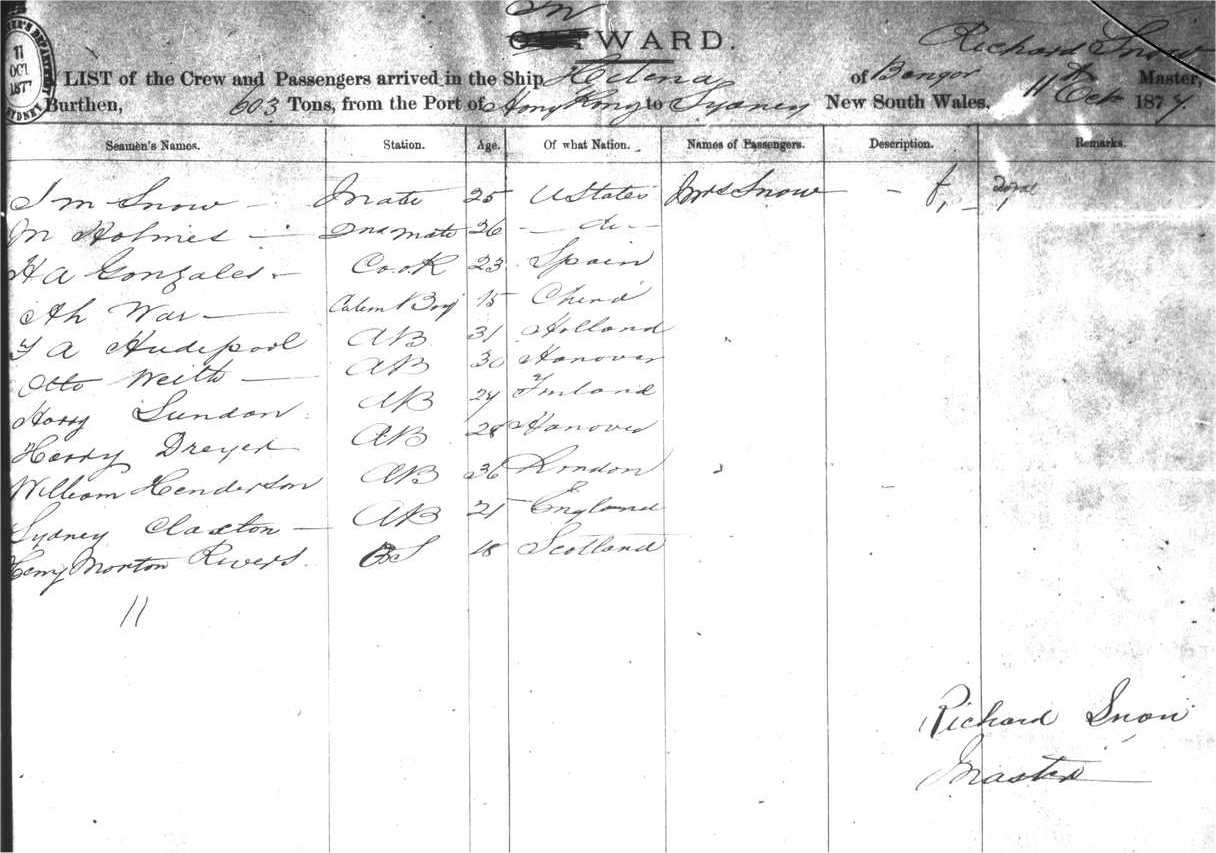 In
OUTWARD.
Richard Snow
11 OCT 1877
SYDNEY
LIST of the Crew and Passengers arrived in the Ship Helena of Bangor Master,
Burthen, 603 Tons, from the Port of Hong Kong to Sydney New South Wales, 11th Oct 1877.
Seamen's Names. Station. Age. Of what Nation. Names of Passengers. Description. Remarks.
Snow — Mate 25 U States Mrs Snow — f,
M Holmes — 2nd Mate 26 — do —
H A Gonzales — Cook 23 Spain
Ah War — Cabin Boy 15 China
A Hudepool AB 31 Holland
Otto Weith — AB 30 Hanover
Harry Lundon AB 24 Finland
Harry Dreyer AB 28 Hanover
William Henderson AB 36 London
Sydney Claxton — AB 21 England
Henry Morton Rivers. OS 18 Scotland
11
Richard Snow
Master